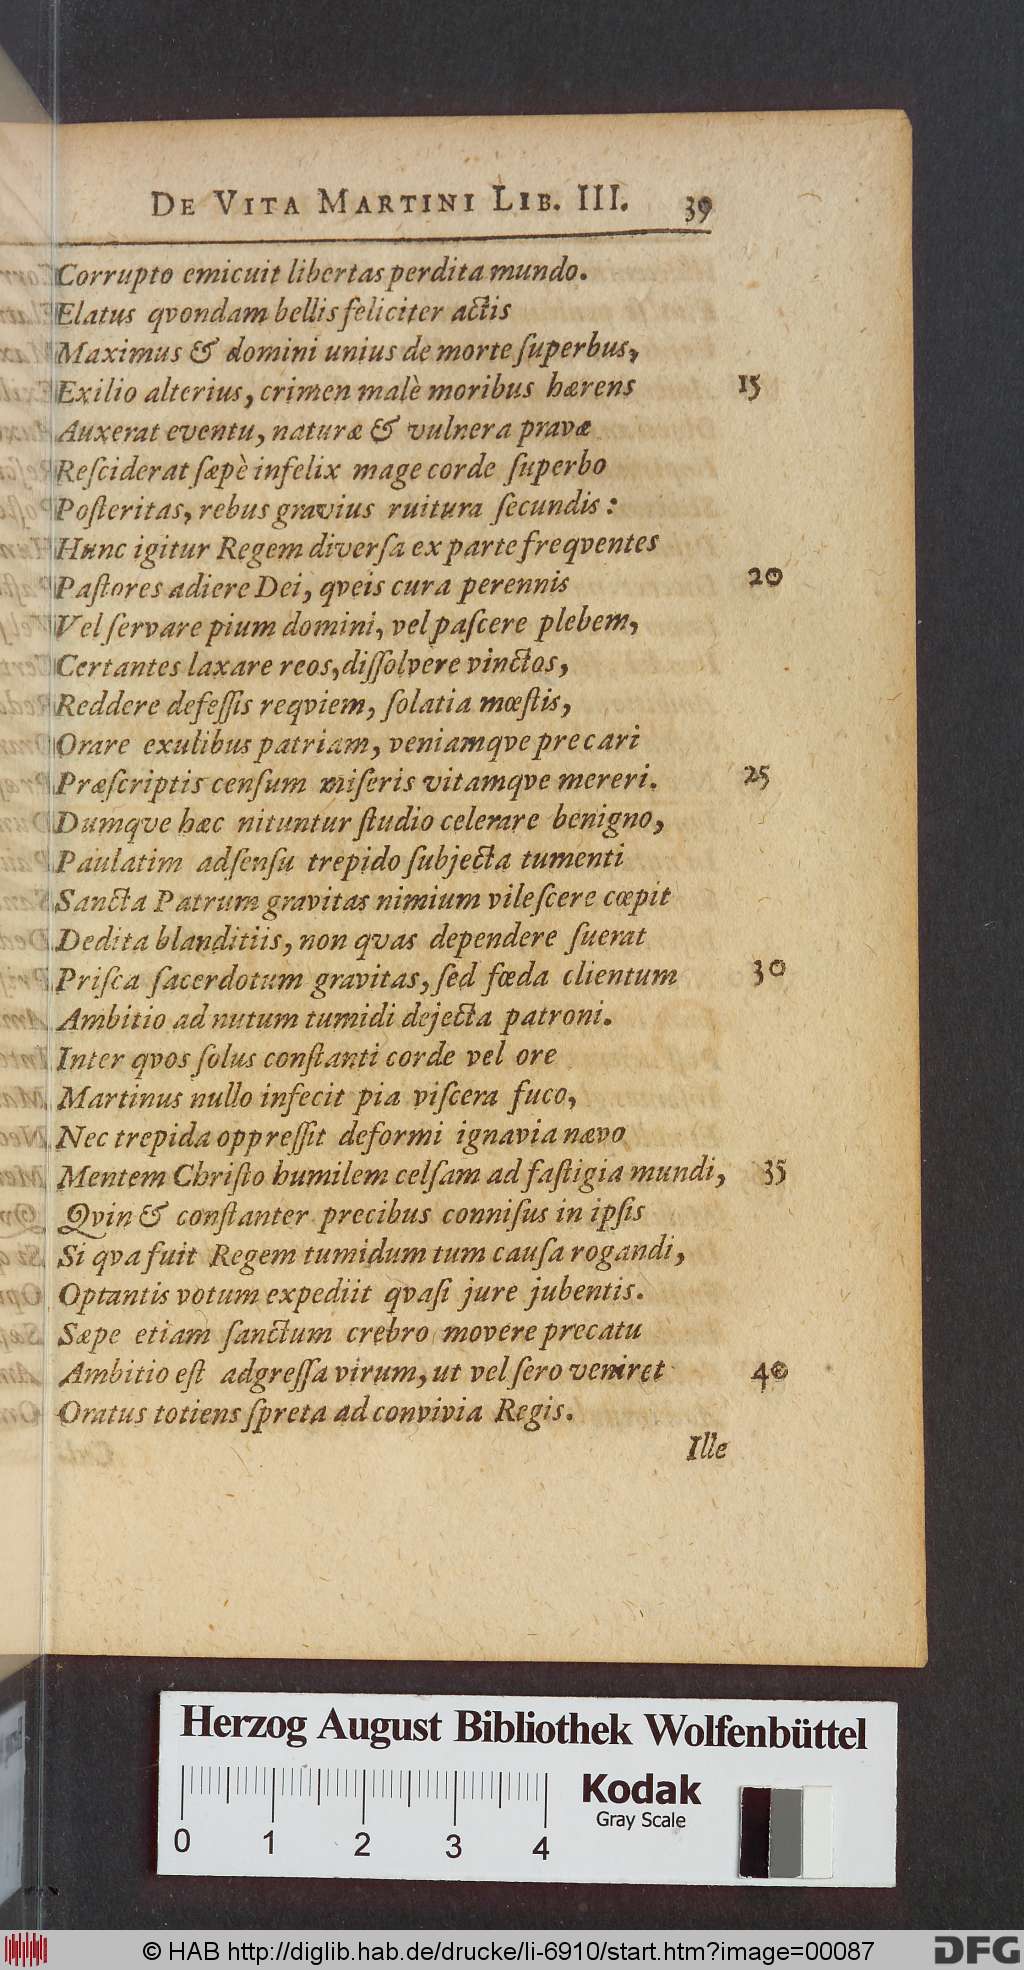 DE VITA MARTINI LIB. III. 39
Corrupto emicuit libertas perdita mundo.
Elatus qvondam bellis feliciter actis
Maximus & domini unius de morte ſuperbus,
Exilio alterius, crimen malè moribus hærens 15
Auxerat eventu, naturæ & vulnera pravæ
Reſciderat ſæpè infelix mage corde ſuperbo
Poſteritas, rebus gravius ruitura ſecundis:
Hunc igitur Regem diverſa ex parte freqventes
Paſtores adiere Dei, qveis cura perennis 20
Vel ſervare pium domini, vel paſcere plebem,
Certantes laxare reos, diſſolvere vinctos,
Reddere defeſſis reqviem, ſolatia mœſtis,
Orare exulibus patriam, veniamqve precari
Præſcriptis cenſum miſeris vitamqve mereri. 25
Dumqve hæc nituntur ſtudio celerare benigno,
Paulatim adſenſu trepido ſubjecta tumenti
Sancta Patrum gravitas nimium vileſcere cœpit
Dedita blanditiis, non qvas dependere ſuerat
Priſca ſacerdotum gravitas, ſed fœda clientum 30
Ambitio ad nutum tumidi dejecta patroni.
Inter qvos ſolus conſtanti corde vel ore
Martinus nullo infecit pia viſcera fuco,
Nec trepida oppreſſit deformi ignavia nævo
Mentem Chriſto humilem celſam ad faſtigia mundi, 35
Qvin & conſtanter precibus conniſus in ipſis
Si qva fuit Regem tumidum tum cauſa rogandi,
Optantis votum expediit qvaſi jure jubentis.
Sæpe etiam ſanctum crebro movere precatu
Ambitio eſt adgreſſa virum, ut vel ſero veniret 40
Oratus totiens ſpreta ad convivia Regis.
Ille
Herzog August Bibliothek Wolfenbüttel
Kodak
Gray Scale
0 1 2 3 4
© HAB http://diglib.hab.de/drucke/li-6910/start.htm?image=00087
DFG